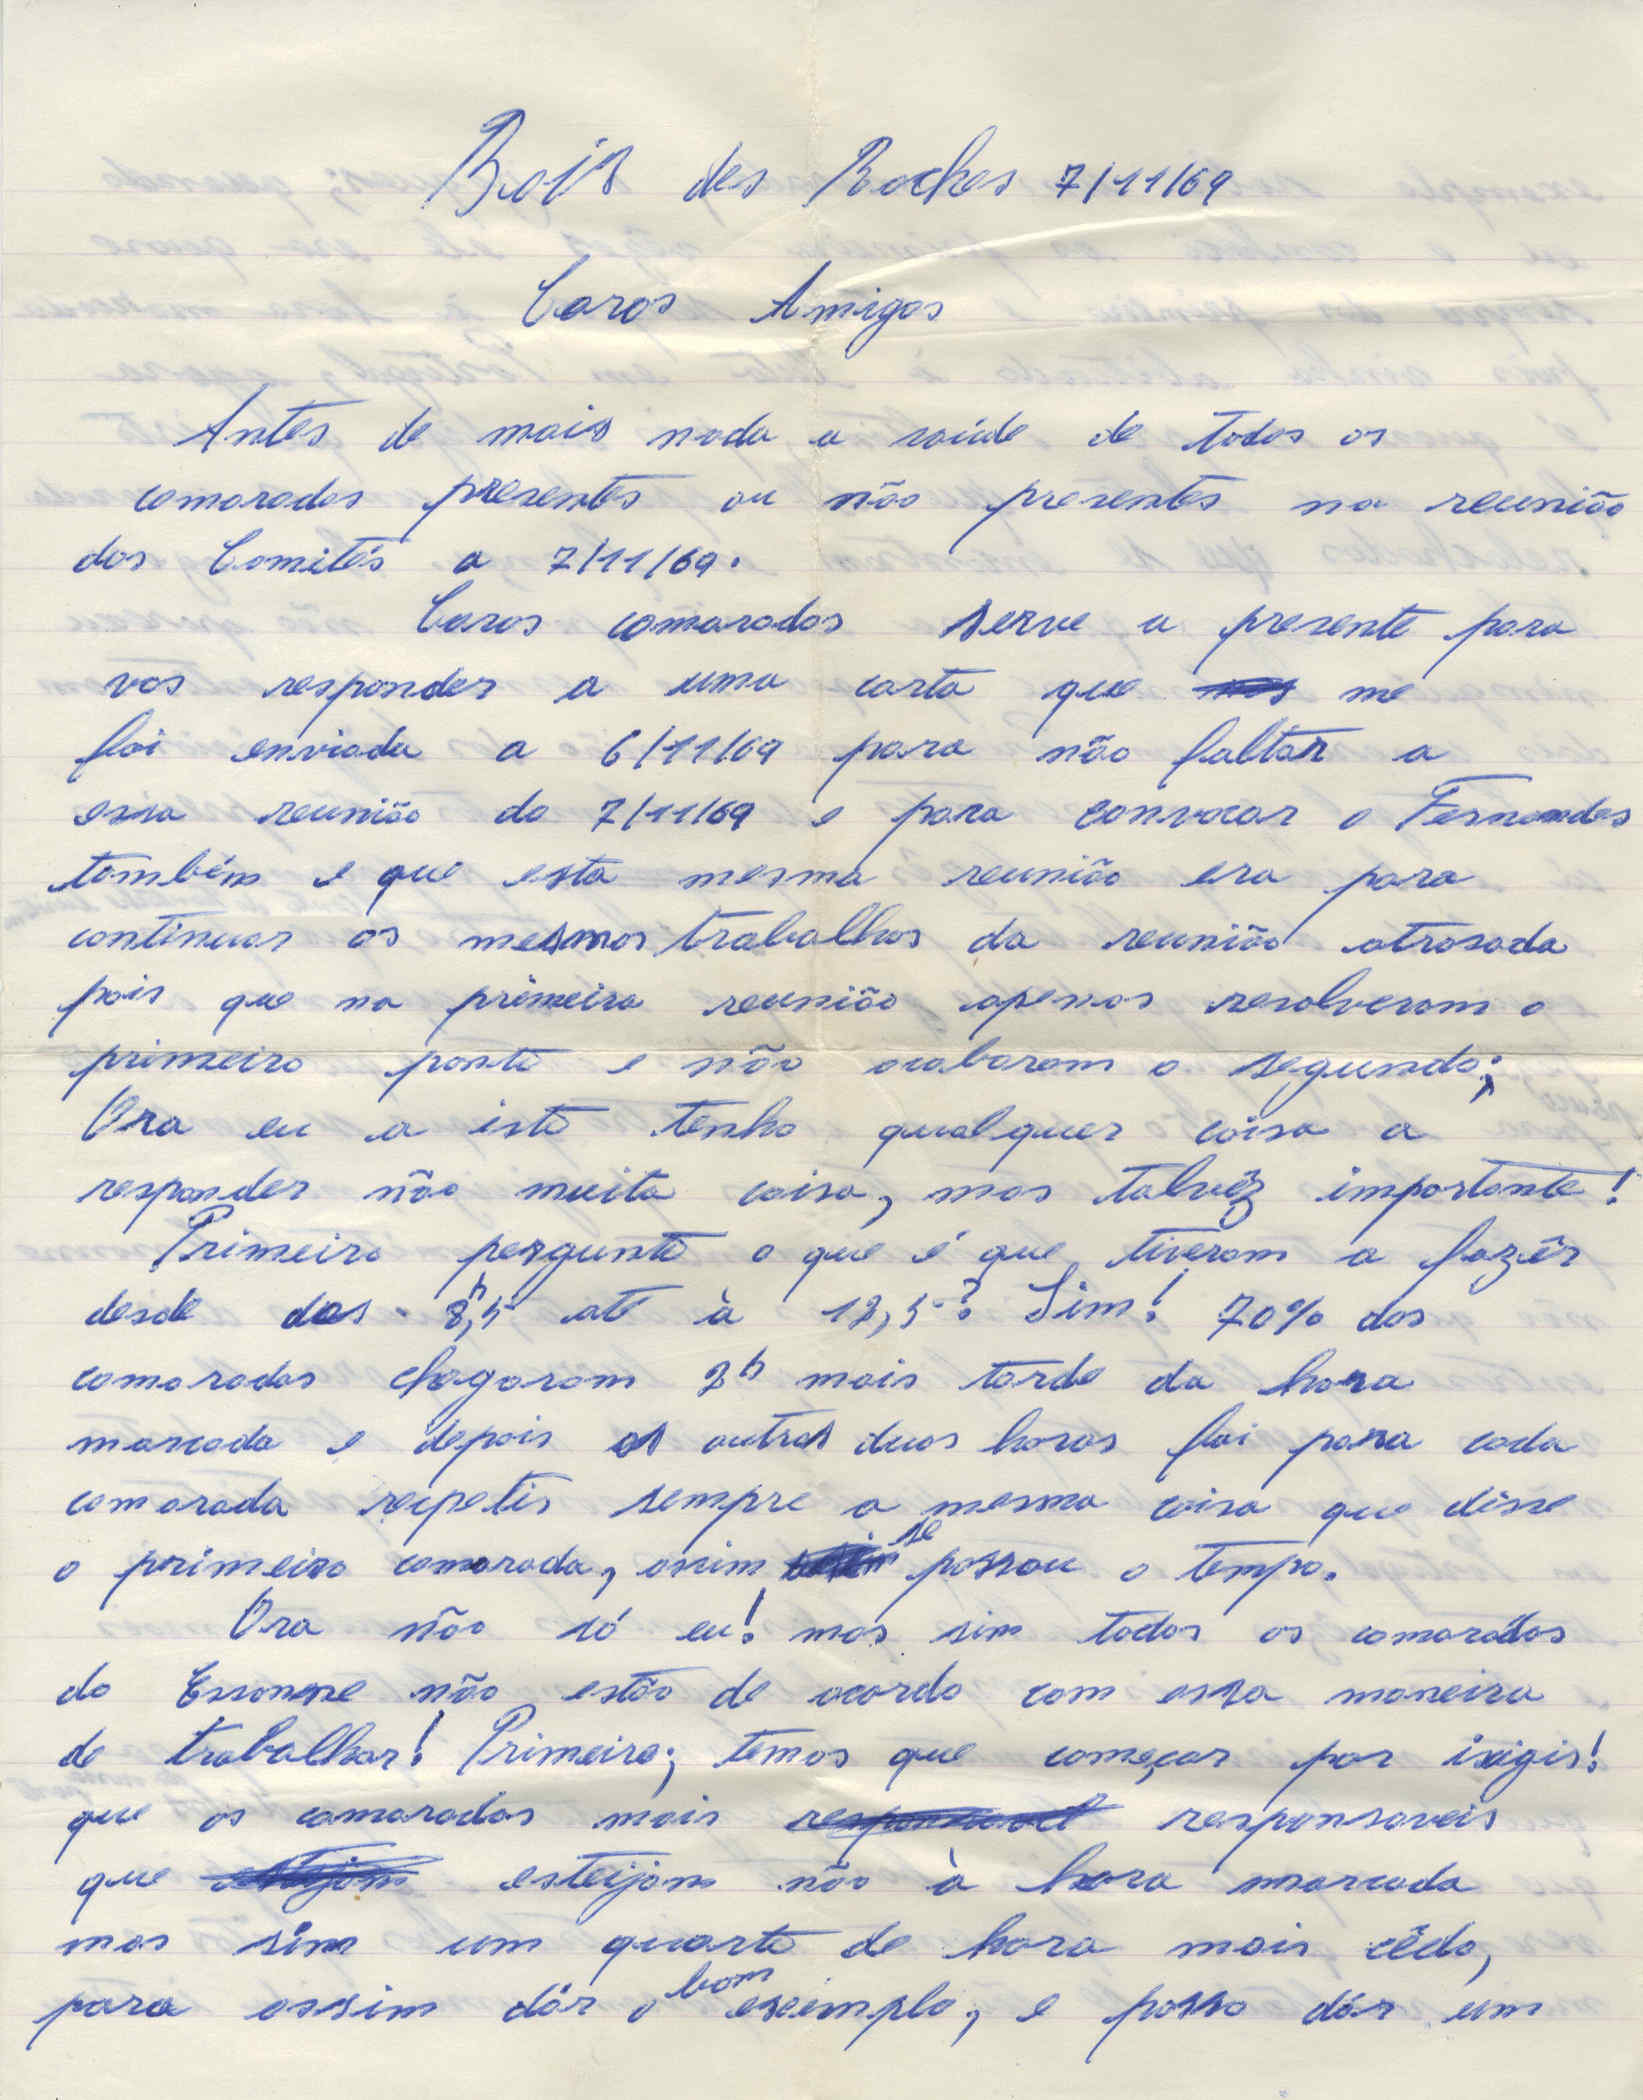 Bois des Roches 7/11/69
Caros Amigos
Antes de mais nada a saúde de todos os
camaradas presentes ou não presentes na reunião
dos Comités a 7/11/69.
Caros camaradas serve a presente para
vos responder a uma carta que me
foi enviada a 6/11/69 para não faltar a
essa reunião do 7/11/69 e para convocar o Fernandes
também e que esta mesma reunião era para
continuar os mesmos trabalhos da reunião atrasada
pois que na primeira reunião apenas resolveram o
primeiro ponto e não acabaram o segundo;
Ora eu a isto tenho qualquer coisa a
responder não muita coisa, mas talvêz importante!
Primeiro pergunto o que é que tiveram a fazêr
desde das 8,5h até à 12,5? Sim! 70% dos
camaradas chegaram 2h mais tarde da hora
marcada e depois as outras duas horas foi para cada
camarada recpetir sempre a mesma coisa que disse
o primeiro camarada, assim se passou o tempo.
Ora não só eu! mas sim todos os camaradas
do Essonne não estão de acordo com essa maneira
de trabalhar! Primeiro; temos que começar por isigir!
que os camaradas mais responsaveis
que esteijam não à hora marcada
mas sim um quarto de hora mais cêdo,
para assim dár o bom eseimplo, e posso dár um